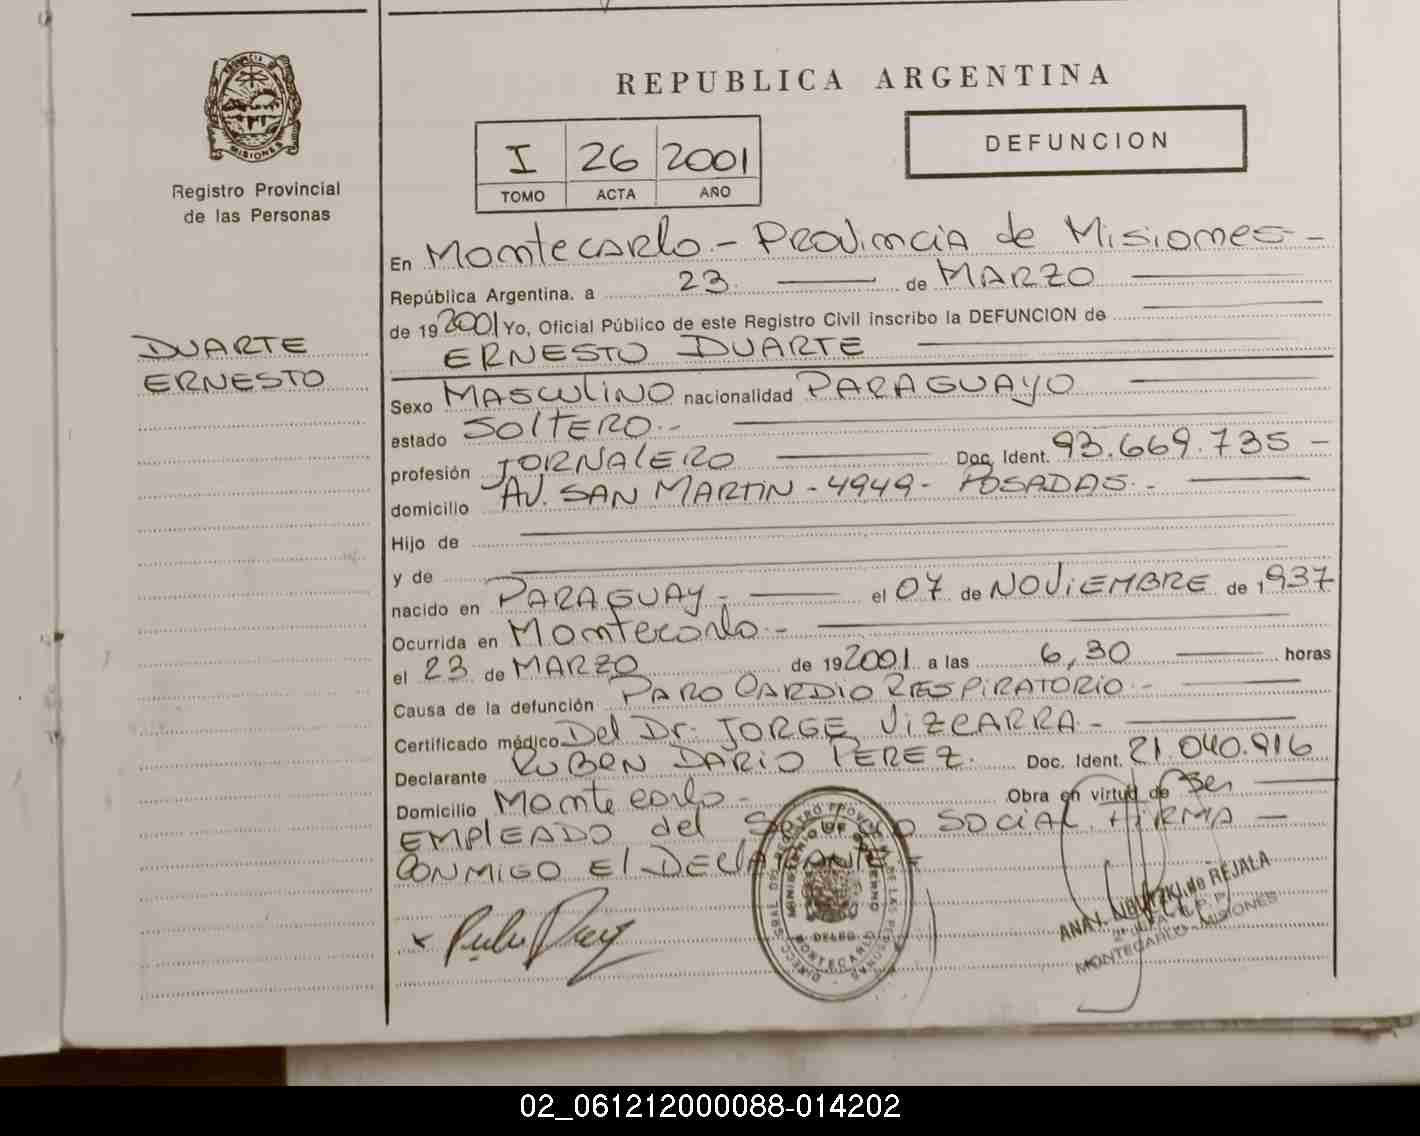 PROVINCIA DE
MISIONES
Registro Provincial
de las Personas
DUARTE
ERNESTO
REPUBLICA ARGENTINA
I 26 2001
TOMO ACTA AÑO
DEFUNCION
En Montecarlo - Provincia de Misiones -
República Argentina. a 23 de MARZO
de 19 2001 Yo, Oficial Público de este Registro Civil inscribo la DEFUNCION de
ERNESTO DUARTE
Sexo MASCULINO nacionalidad PARAGUAYO
estado SOLTERO.-
profesión JORNALERO Doc. Ident. 93.669.735 -
domicilio AV. SAN MARTIN - 4949 - POSADAS.-
Hijo de
y de
nacido en PARAGUAY.- el 07 de NOVIEMBRE de 1937
Ocurrida en Montecarlo.-
el 23 de MARZO de 19 2001 a las 6,30 horas
Causa de la defunción PARO CARDIO RESPIRATORIO.-
Certificado médico Del Dr. JORGE VIZCARRA.-
Declarante RUBEN DARIO PEREZ. Doc. Ident. 21.040.916
Domicilio Montecarlo.- Obra en virtud de Ser
EMPLEADO del SOCIAL. FIRMA -
CONMIGO El DECLARANTE.-
MINISTERIO DE GOBIERNO
DELEG.
MONTECARLO
de REJALA
MONTECARLO - MISIONES
02_061212000088-014202